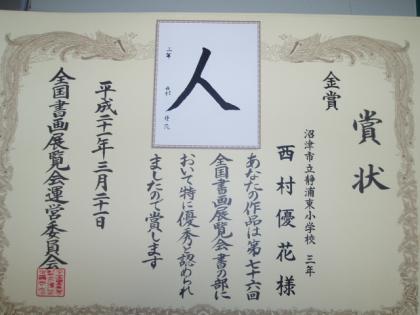 賞状
金賞
沼津市立静浦東小学校 三年
西村優花様
あなたの作品は第七十六回
全国書画展覧会書の部に
おいて特に優秀と認められ
ましたので賞します
平成二十一年三月二十一日
全国書画展覧会運営委員会
人
三年